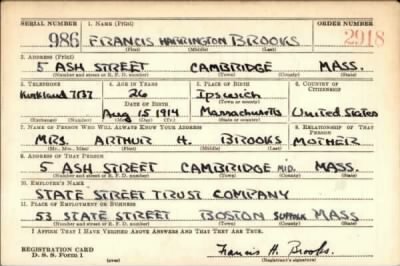 SERIAL NUMBER 1. NAME (Print) ORDER NUMBER
986 FRANCIS HARRINGTON BROOKS 2918
(First) (Middle) (Last)
2. ADDRESS (Print)
5 ASH STREET CAMBRIDGE MASS.
(Number and street or R. F. D. number) (Town) (County) (State)
3. TELEPHONE 4. AGE IN YEARS 5. PLACE OF BIRTH 6. COUNTRY OF CITIZENSHIP
Kirkland 7137 26 Ipswich
DATE OF BIRTH (Town or county)
Aug 15 1914 Massachusetts United States
(Exchange) (Number) (Mo.) (Day) (Yr.) (State or country)
7. NAME OF PERSON WHO WILL ALWAYS KNOW YOUR ADDRESS 8. RELATIONSHIP OF THAT PERSON
MRS. ARTHUR H. BROOKS MOTHER
(Mr., Mrs., Miss) (First) (Middle) (Last)
9. ADDRESS OF THAT PERSON
5 ASH STREET CAMBRIDGE MID. MASS.
(Number and street or R. F. D. number) (Town) (County) (State)
10. EMPLOYER'S NAME
STATE STREET TRUST COMPANY
11. PLACE OF EMPLOYMENT OR BUSINESS
53 STATE STREET BOSTON SUFFOLK MASS
(Number and street or R. F. D. number) (Town) (County) (State)
I AFFIRM THAT I HAVE VERIFIED ABOVE ANSWERS AND THAT THEY ARE TRUE.
REGISTRATION CARD
D. S. S. Form 1 (over) Francis H. Brooks.
(Registrant's signature)